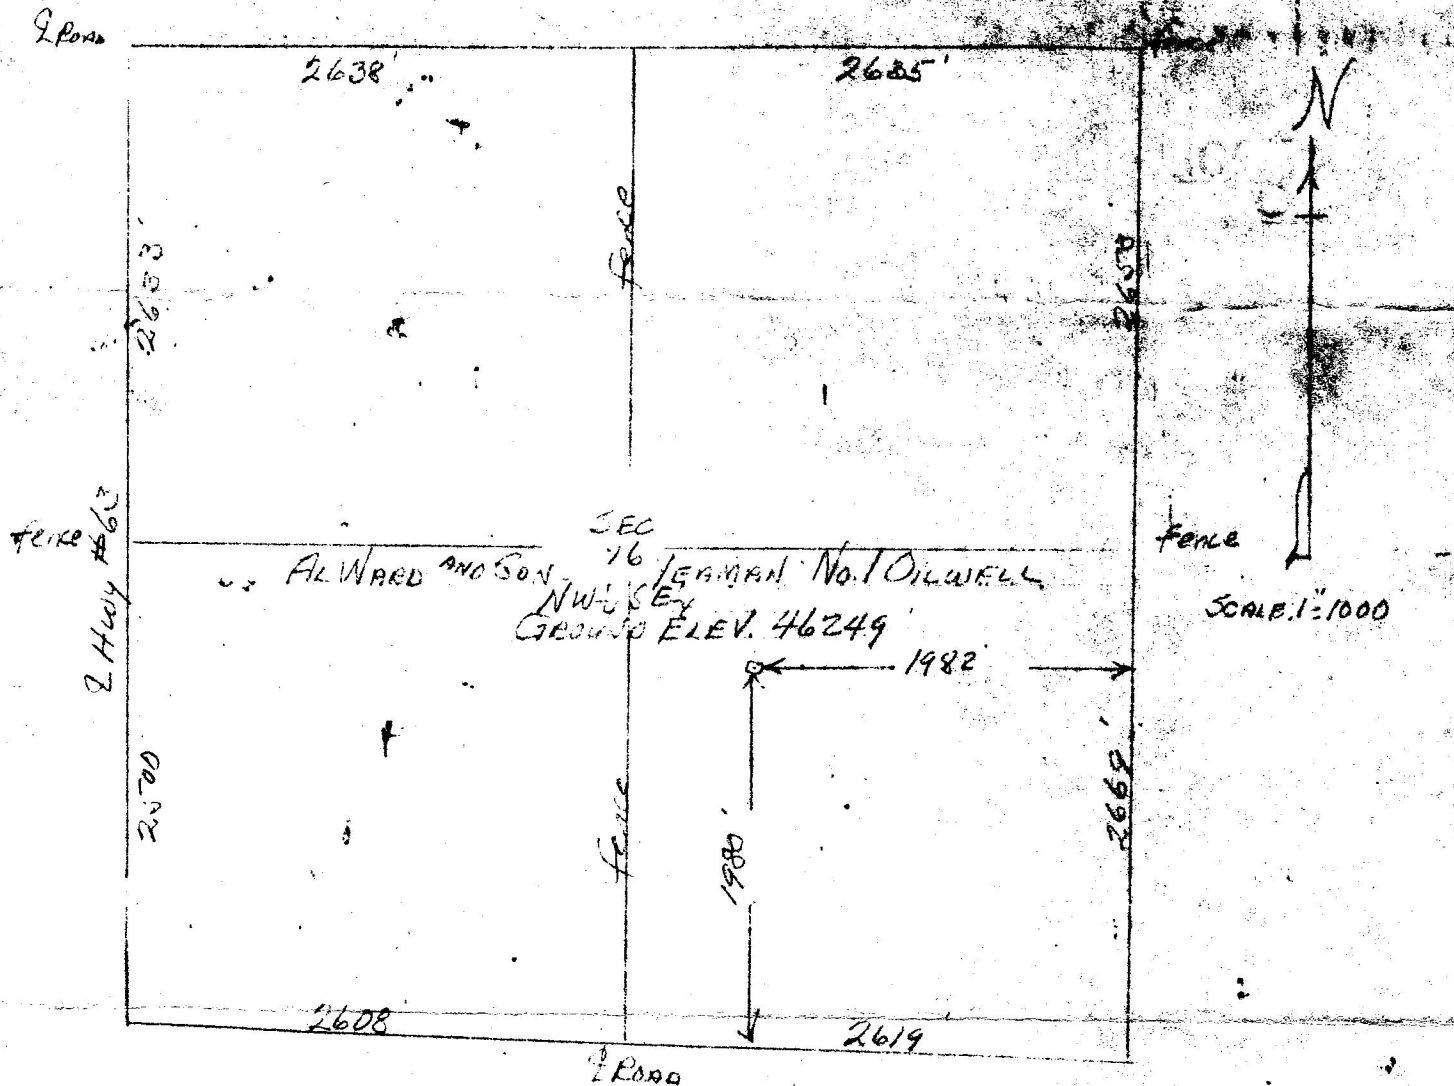 ℄ ROAD
2638'
fence
N
fence
2633'
fence
℄ Hwy #63
fence
SEC
16
AL WARD AND SON YEAMAN No. 1 OILWELL
NW¼ SE¼
GROUND ELEV. 46249
SCALE 1"=1000
1982
1980'
fence
2669'
2608
2619
℄ ROAD